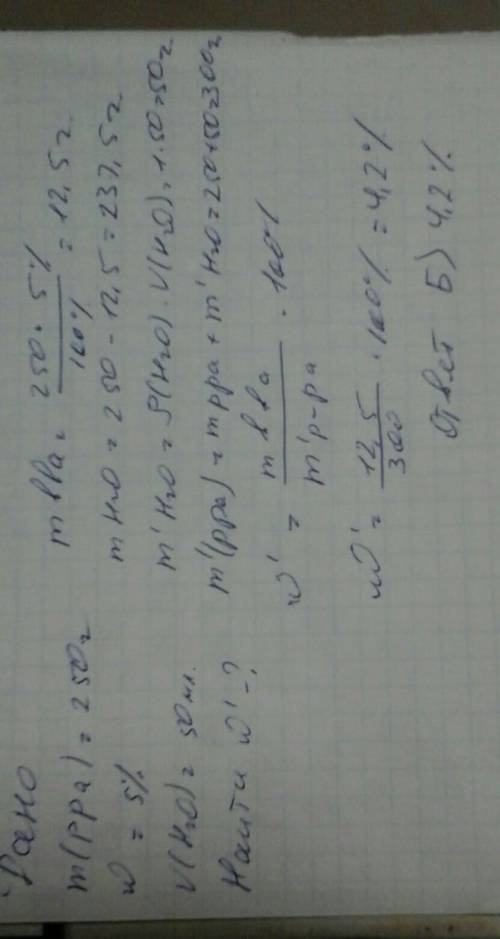 Дано
m(рра) = 250г
w = 5%
V(H2O) = 50 мл.
Найти w' - ?
m вва = 250 · 5% / 100% = 12,5 г
m H2O = 250 - 12,5 = 237,5 г
m' H2O = ρ(H2O) · V(H2O) = 1 · 50 = 50г
m'(рра) = m рра + m' H2O = 250+50=300г
w' = m вва / m'р-ра · 100%
w' = 12,5 / 300 · 100% = 4,2%
Ответ Б) 4,2%